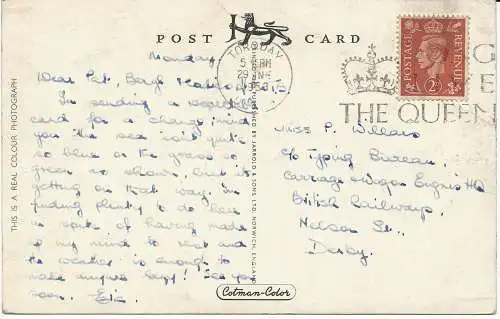 POST CARD
TORQUAY
5 PM
29 JNE
1953
G
E
THE QUEEN
POSTAGE
REVENUE
2D
THIS IS A REAL COLOUR PHOTOGRAPH
BY JARROLD & SONS LTD. NORWICH, ENGLAND
Monday
Dear Pat,
I'm sending a
card for a change, mind
you the sea isn't quite
so blue or the grass so
green as shown, but it's
getting on that way. I'm
finding plenty to do here
in spite of having made
up my mind to rest and
the weather is enough to
make anyone happy! See you
soon. Eric
Miss P. Willars
c/o Typing Bureau,
Carriage & Wagon Engrs HQ
British Railways,
Nelson St.,
Derby.
Cotman-Color